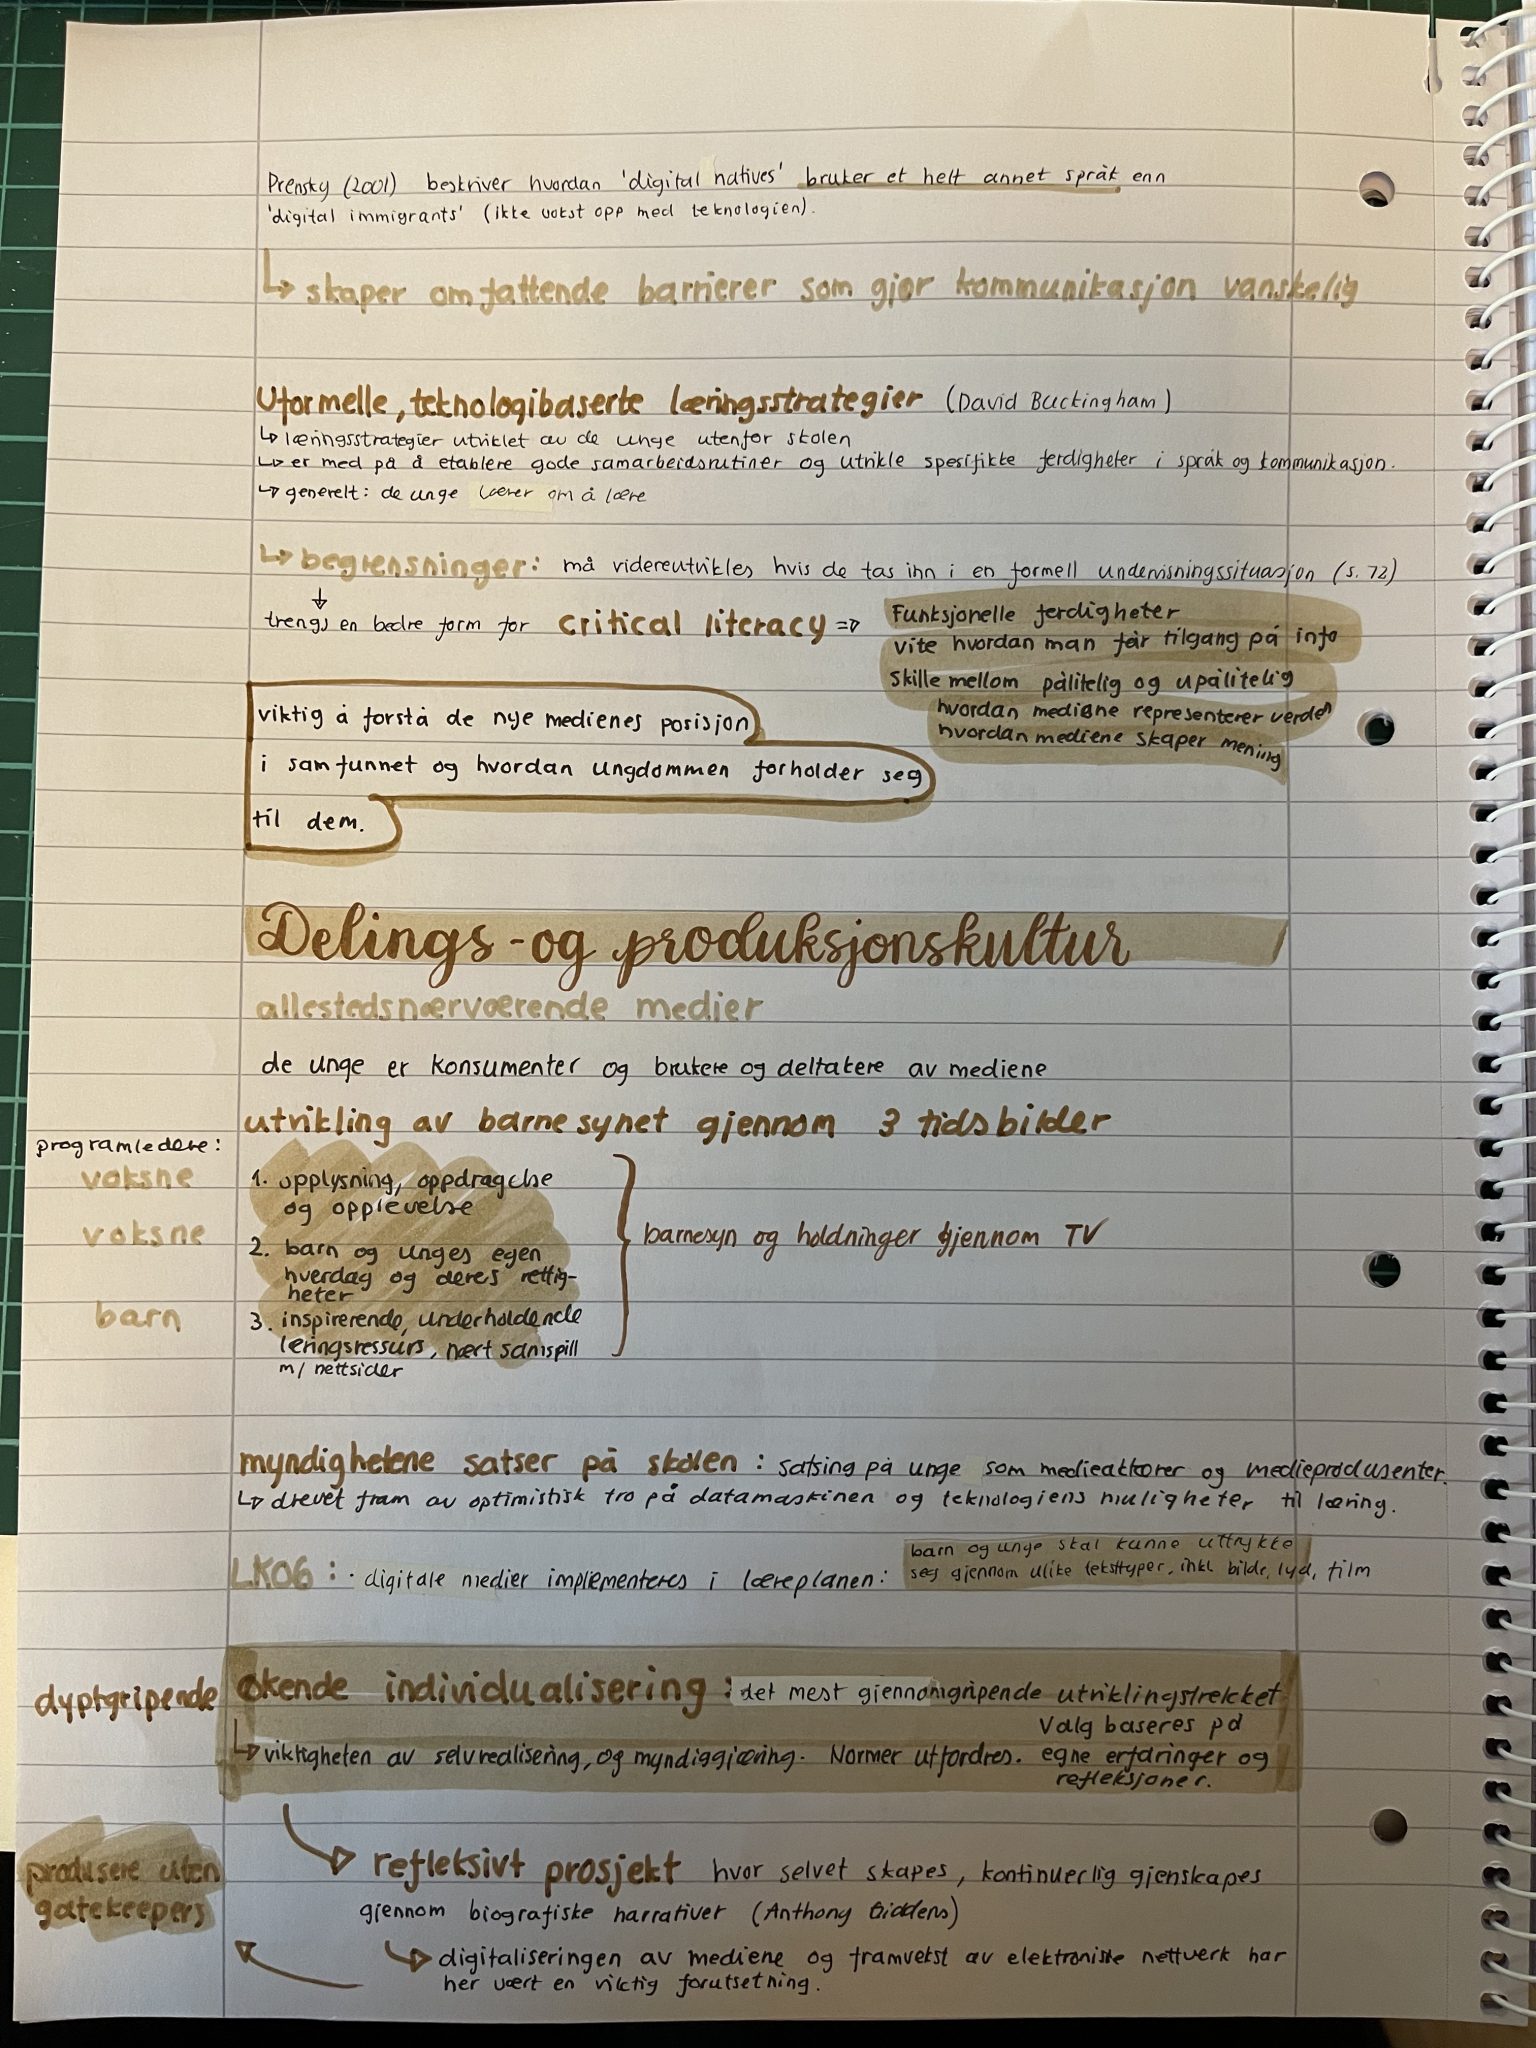 Prensky (2001) beskriver hvordan 'digital natives' bruker et helt annet språk enn
'digital immigrants' (ikke vokst opp med teknologien).
↳ skaper omfattende barrierer som gjør kommunikasjon vanskelig
Uformelle, teknologibaserte læringsstrategier (David Buckingham)
↳ læringsstrategier utviklet av de unge utenfor skolen
↳ er med på å etablere gode samarbeidsrutiner og utvikle spesifikke ferdigheter i språk og kommunikasjon.
↳ generelt: de unge lærer om å lære
↳ begrensninger: må videreutvikles hvis de tas inn i en formell undervisningssituasjon (s. 72)
↓
trengs en bedre form for critical literacy ⇒ Funksjonelle ferdigheter
vite hvordan man får tilgang på info
skille mellom pålitelig og upålitelig
hvordan mediene representerer verden
hvordan mediene skaper mening
viktig å forstå de nye medienes posisjon
i samfunnet og hvordan ungdommen forholder seg
til dem.
Delings- og produksjonskultur
allestedsnærværende medier
de unge er konsumenter og brukere og deltakere av mediene
utvikling av barnesynet gjennom 3 tidsbilder
programledere:
voksne 1. opplysning, oppdragelse
og opplevelse
voksne 2. barn og unges egen
hverdag og deres rettig-
heter
barn 3. inspirerende, underholdende
læringsressurs, nært samspill
m/ nettsider
barnesyn og holdninger gjennom TV
myndighetene satser på skolen: satsing på unge som medieaktører og medieprodusenter.
↳ drevet fram av optimistisk tro på datamaskinen og teknologiens muligheter til læring.
LK06: · digitale medier implementeres i læreplanen: barn og unge skal kunne uttrykke
seg gjennom ulike teksttyper, inkl bilde, lyd, film
dyptgripende økende individualisering: det mest gjennomgripende utviklingstrekket
↳ viktigheten av selvrealisering, og myndiggjøring. Normer utfordres. Valg baseres på
egne erfaringer og
refleksjoner.
produsere uten
gatekeepers
refleksivt prosjekt hvor selvet skapes, kontinuerlig gjenskapes
gjennom biografiske narrativer (Anthony Giddens)
↳ digitaliseringen av mediene og framvekst av elektroniske nettverk har
her vært en viktig forutsetning.